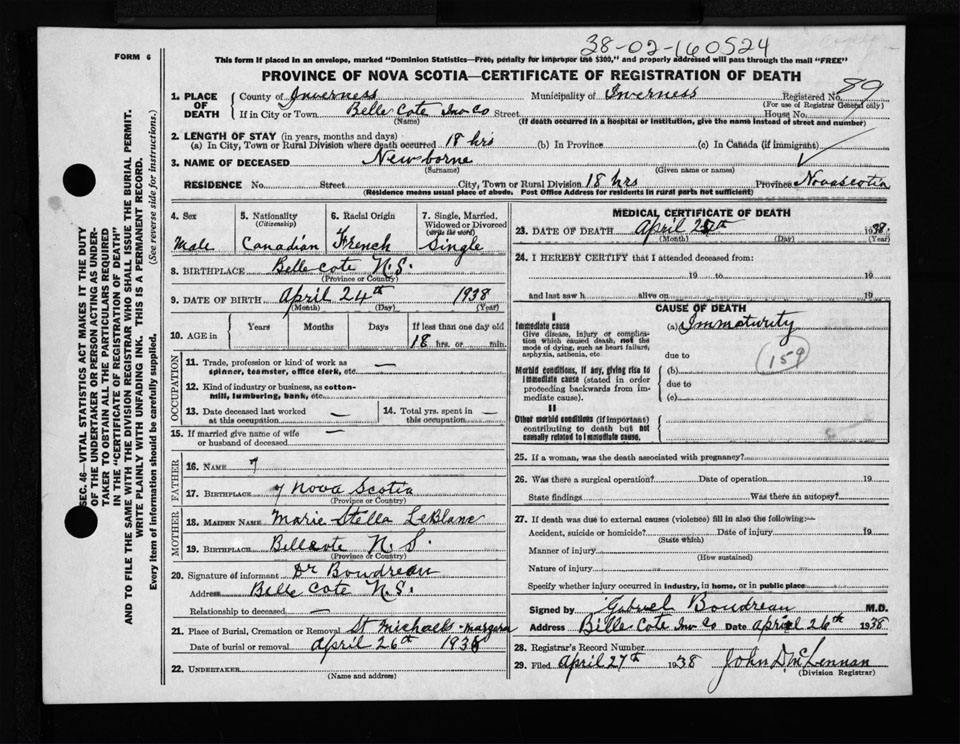 38-02-160524
FORM 6
This form if placed in an envelope, marked "Dominion Statistics—Free, penalty for improper use $300," and properly addressed will pass through the mail "FREE"
PROVINCE OF NOVA SCOTIA—CERTIFICATE OF REGISTRATION OF DEATH
1. PLACE OF DEATH
County of Inverness Municipality of Inverness Registered No. 89
(For use of Registrar General only)
If in City or Town Belle Cote Inv Co Street House No.
(Name) (If death occurred in a hospital or institution, give the name instead of street and number)
2. LENGTH OF STAY (in years, months and days)
(a) In City, Town or Rural Division where death occurred 18 hrs (b) In Province (c) In Canada (if immigrant)
3. NAME OF DECEASED Newborne
(Surname) (Given name or names)
RESIDENCE No. Street City, Town or Rural Division 18 hrs Province Nova Scotia
(Residence means usual place of abode. Post Office Address for residents in rural parts not sufficient)
SEC. 46—VITAL STATISTICS ACT MAKES IT THE DUTY
OF THE UNDERTAKER OR PERSON ACTING AS UNDER-
TAKER TO OBTAIN ALL THE PARTICULARS REQUIRED
IN THE "CERTIFICATE OF REGISTRATION OF DEATH"
AND TO FILE THE SAME WITH THE DIVISION REGISTRAR WHO SHALL ISSUE THE BURIAL PERMIT.
WRITE PLAINLY WITH UNFADING INK. THIS IS A PERMANENT RECORD.
Every item of information should be carefully supplied. (See reverse side for instructions.)
4. Sex
Male
5. Nationality
(Citizenship)
Canadian
6. Racial Origin
French
7. Single, Married,
Widowed or Divorced
(write the word)
Single
8. BIRTHPLACE Belle Cote N.S.
(Province or Country)
9. DATE OF BIRTH April 24th 1938
(Month) (Day) (Year)
10. AGE in
Years Months Days If less than one day old
18 hrs. or min.
OCCUPATION
11. Trade, profession or kind of work as
spinner, teamster, office clerk, etc. —
12. Kind of industry or business, as cotton-
mill, lumbering, bank, etc.
13. Date deceased last worked
at this occupation —
14. Total yrs. spent in
this occupation —
15. If married give name of wife
or husband of deceased —
FATHER
16. NAME ?
17. BIRTHPLACE ? Nova Scotia
(Province or Country)
MOTHER
18. MAIDEN NAME Marie Stella LeBlanc
19. BIRTHPLACE Bellecote N.S.
(Province or Country)
20. Signature of informant Dr Boudreau
Address Belle Cote N.S.
Relationship to deceased —
21. Place of Burial, Cremation or Removal St Michaels - Margaree
Date of burial or removal April 26th 1938
22. UNDERTAKER
(Name and address)
MEDICAL CERTIFICATE OF DEATH
23. DATE OF DEATH April 25th 1938
(Month) (Day) (Year)
24. I HEREBY CERTIFY that I attended deceased from:
19 to 19
and last saw h alive on 19
CAUSE OF DEATH
I
Immediate cause (a) Immaturity
Give disease, injury or complica-
tion which caused death, not the
mode of dying, such as heart failure,
asphyxia, asthenia, etc.
due to
159
Morbid conditions, if any, giving rise to (b)
immediate cause (stated in order due to
proceeding backwards from im-
mediate cause). (c)
II
Other morbid conditions (if important)
contributing to death but not
causally related to immediate cause.
25. If a woman, was the death associated with pregnancy?
26. Was there a surgical operation? Date of operation 19
State findings Was there an autopsy?
27. If death was due to external causes (violence) fill in also the following:—
Accident, suicide or homicide? Date of injury 19
(State which)
Manner of injury
(How sustained)
Nature of injury
Specify whether injury occurred in industry, in home, or in public place
Signed by Gabriel Boudreau M.D.
Address Belle Cote Inv Co Date April 26th 1938
28. Registrar's Record Number
29. Filed April 27th 1938 John D. McLennan
(Division Registrar)